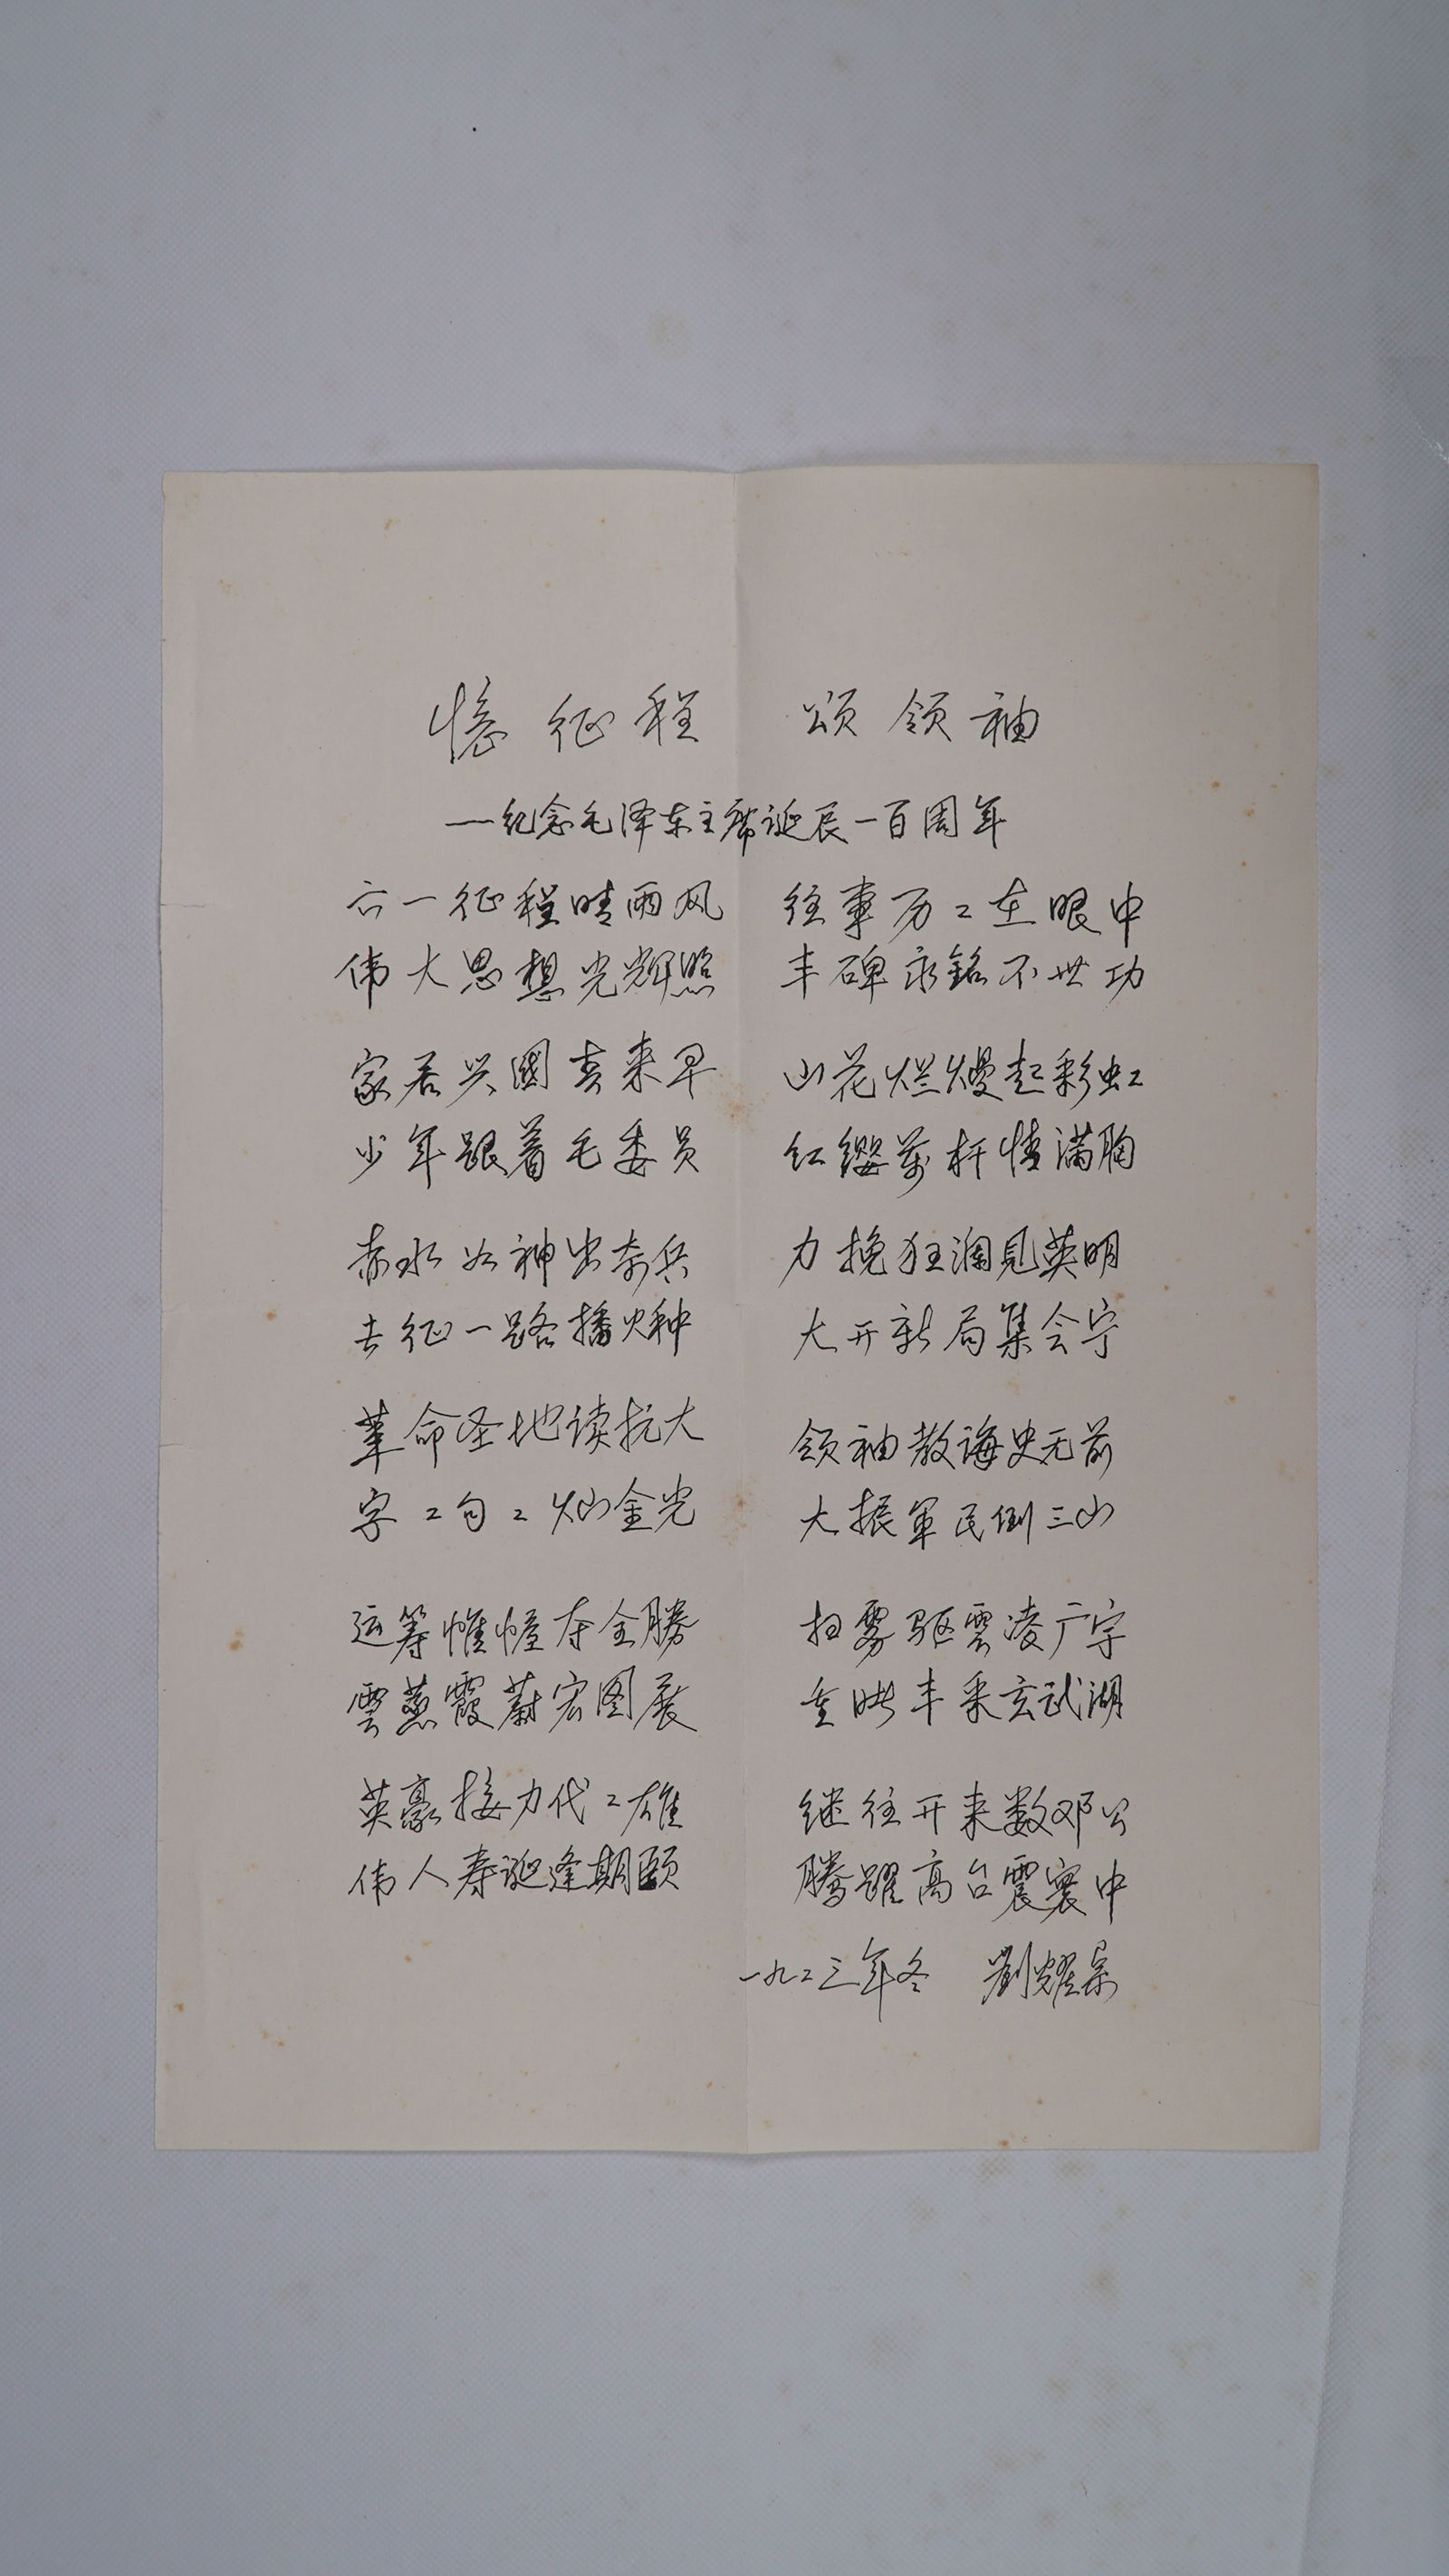 憶征程 颂领袖
一纪念毛泽东主席诞辰一百周年
六一征程晴雨风 往事历々在眼中
伟大思想光辉照 丰碑永銘不世功
家居兴國春来早 山花烂熳起彩虹
少年跟着毛委员 红缨万杆情满胸
赤水如神出奇兵 力挽狂澜見英明
长征一路播火种 大开新局集会宁
革命圣地读抗大 领袖教诲史无前
字々句々灿金光 大振軍民倒三山
运筹帷幄夺全勝 扫雾驱雲凌广宇
雲蒸霞蔚宏图展 重映丰采玄武湖
英豪接力代々雄 继往开来数邓公
伟人寿诞逢期颐 腾躍高台震寰中
一九二三年冬 劉耀宗